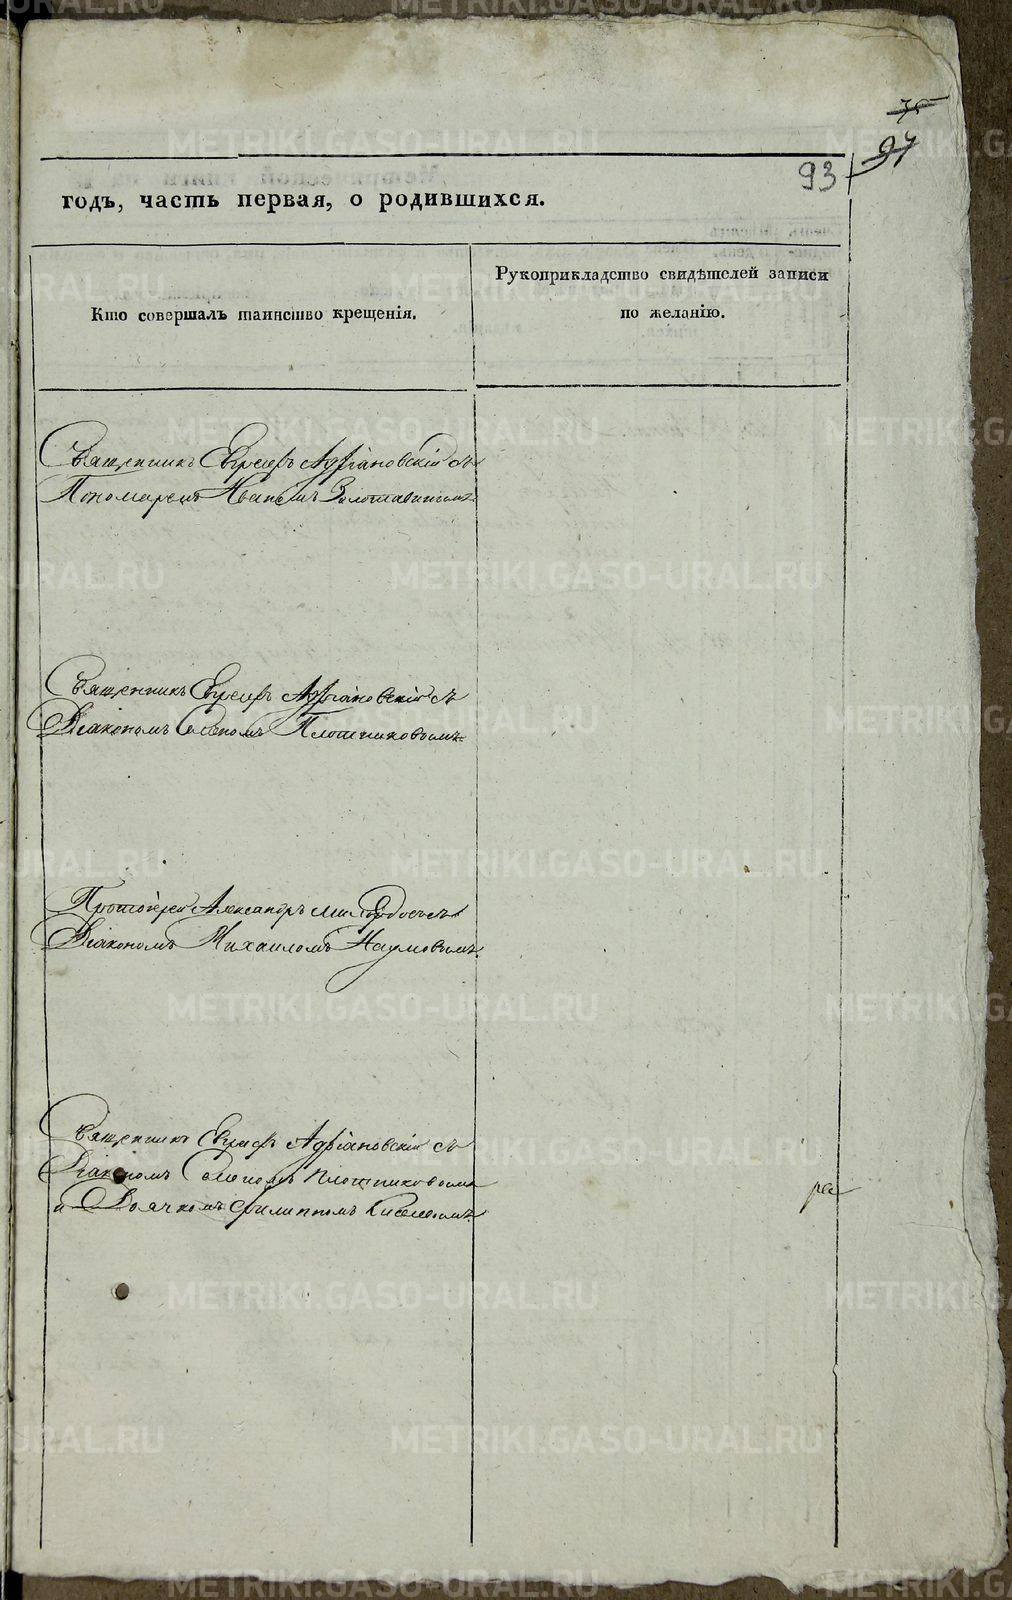 75
97
93
годъ, часть первая, о родившихся.
Кто совершалъ таинство крещенія.
Рукоприкладство свидѣтелей записи
по желанію.
Священникъ Адріановскій съ
Пономаремъ Иваномъ Золотавинымъ
Священникъ Адріановскій съ
Діакономъ Плотниковымъ
Протоіерей Александръ съ
Діакономъ Михаиломъ Наумовымъ
Священникъ Адріановскій съ
Діакономъ Плотниковымъ
и Дьячкомъ Филиппомъ Киселевымъ
METRIKI.GASO-URAL.RU